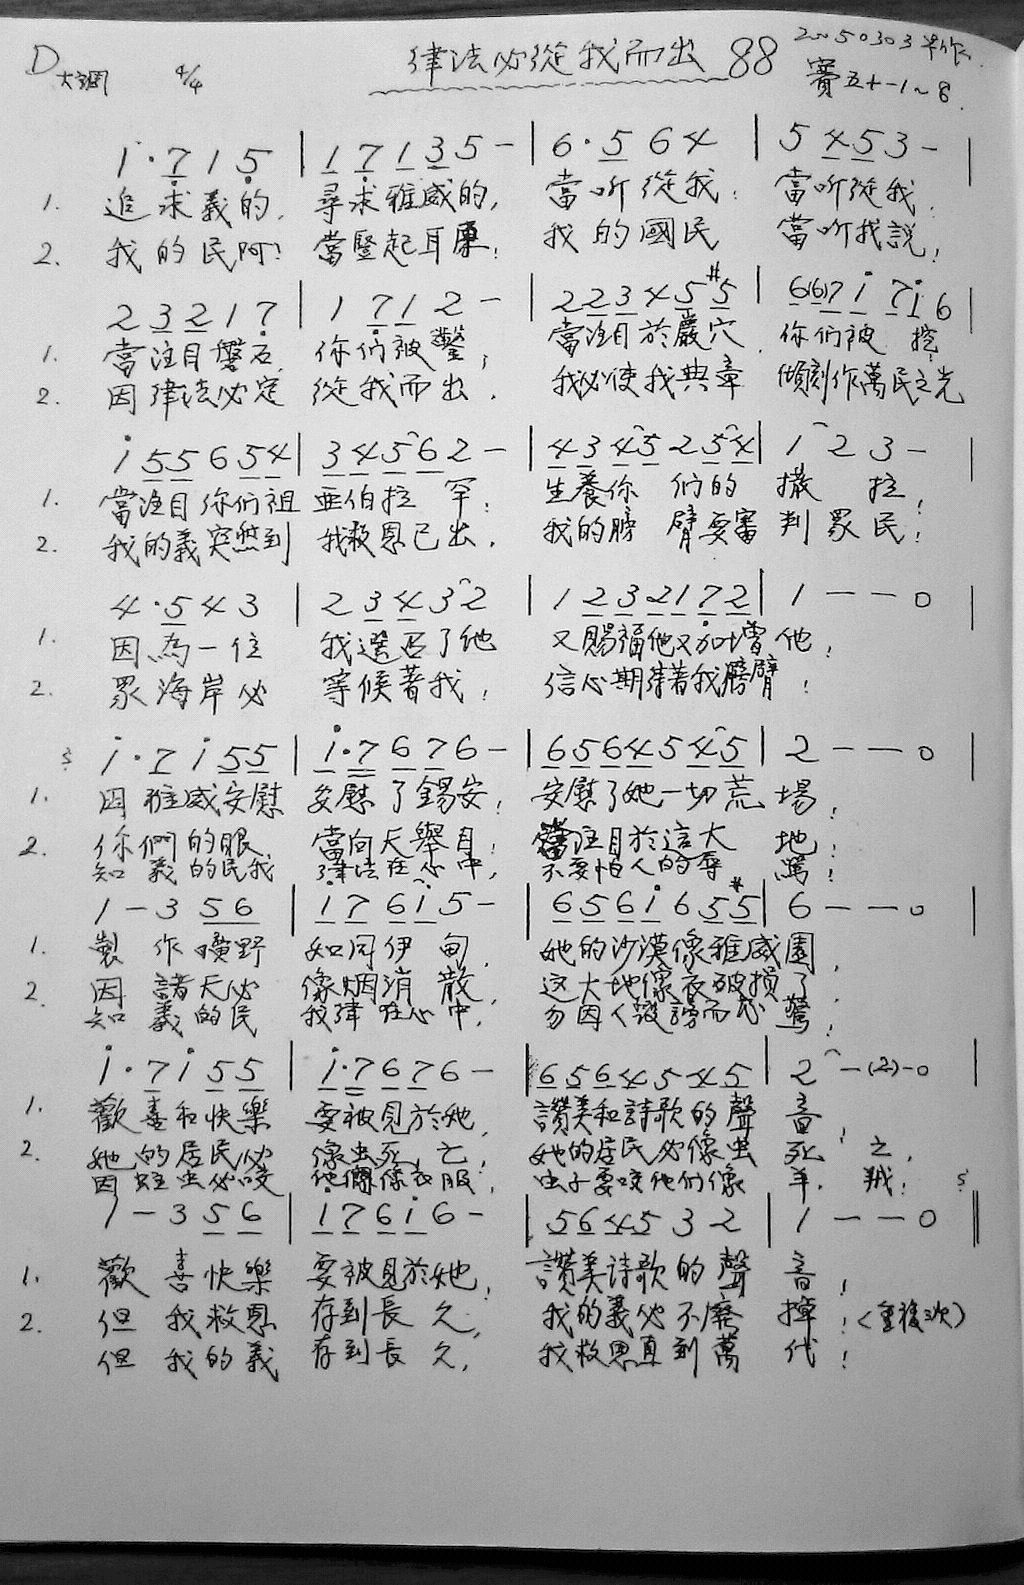 D大調 4/4 律法必從我而出 88 20050303早作
賽五十一1~8
1·7 1 5 | 1 7 1 3 5 - | 6·5 6 4 | 5 4 5 3 - |
1. 追求義的, 尋求雅威的, 當听從我; 當听從我,
2. 我的民阿! 當豎起耳來; 我的國民 當听我說;
2 3 2 1 7 | 1 7 1 2 - | 2 2 3 4 5 #5 | 6(6)7 1 7 1 6
1. 當注目磐石, 你們被鑿; 當注目於巖穴, 你們被挖
2. 因律法必定 從我而出, 我必使我典章 傾刻作萬民之光
1 5 5 6 5 4 | 3 4 5 6 2 - | 4 3 4 5 2 5 4 | 1 2 3 - |
1. 當注目你們祖 亜伯拉罕; 生養你們的 撒拉,
2. 我的義突然到 我救恩已出, 我的膀臂要審判眾民;
4·5 4 3 | 2 3 4 3 2 | 1 2 3 2 1 7 2 | 1 - - 0 |
1. 因為一位 我選召了他 又賜福他又加增他;
2. 眾海岸必 等候著我; 信心期待著我膀臂;
1·7 1 5 5 | 1·7 6 7 6 - | 6 5 6 4 5 4 5 | 2 - - 0 |
1. 因雅威安慰 安慰了錫安; 安慰了她一切荒場;
2. 你們的眼, 當向天舉目; 當注目於這大地;
知義的民我 律法在心中, 不要怕人的辱罵;
1 - 3 5 6 | 1 7 6 1 5 - | 6 5 6 1 6 5 #5 | 6 - - 0
1. 製作曠野 如同伊甸, 她的沙漠像雅威園,
2. 因諸天必 像烟消散, 这大地像衣破損了,
知義的民 我律在心中, 勿因人毀謗而心驚;
1·7 1 5 5 | 1·7 6 7 6 - | 6 5 6 4 5 4 5 | 2 -(2)-0 |
1. 歡喜和快樂 要被見於她, 讚美和詩歌的聲音,
2. 她的居民必 像虫死亡; 她的居民必像虫死之,
因蛀虫必咬 他們像衣服, 虫子要咬他們像羊羢;
1 - 3 5 6 | 1 7 6 1 6 - | 5 6 4 5 3 2 | 1 - - 0 ‖
1. 歡喜快樂 要被見於她, 讚美詩歌的聲音,
2. 但我救恩 存到長久, 我的義必不廢掉;
但我的義 存到長久, 我救恩直到萬代;